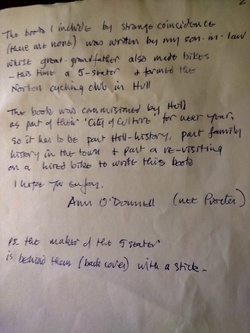 2
The book I include by strange coincidence
(there are none) was written by my son-in-law
whose great-grandfather also made bikes
- this time a 5-seater & formed the
Norton cycling club in Hull
The book was commissioned by Hull
as part of their 'City of Culture' for next year,
so it has to be part Hull-history, part family
history in the town & part a re-visiting
on a hired bike to write this book
I hope you enjoy.
Ann O'Donnell (née Porter)
PS the maker of the 5 seater
is behind them (back cover) with a stick -